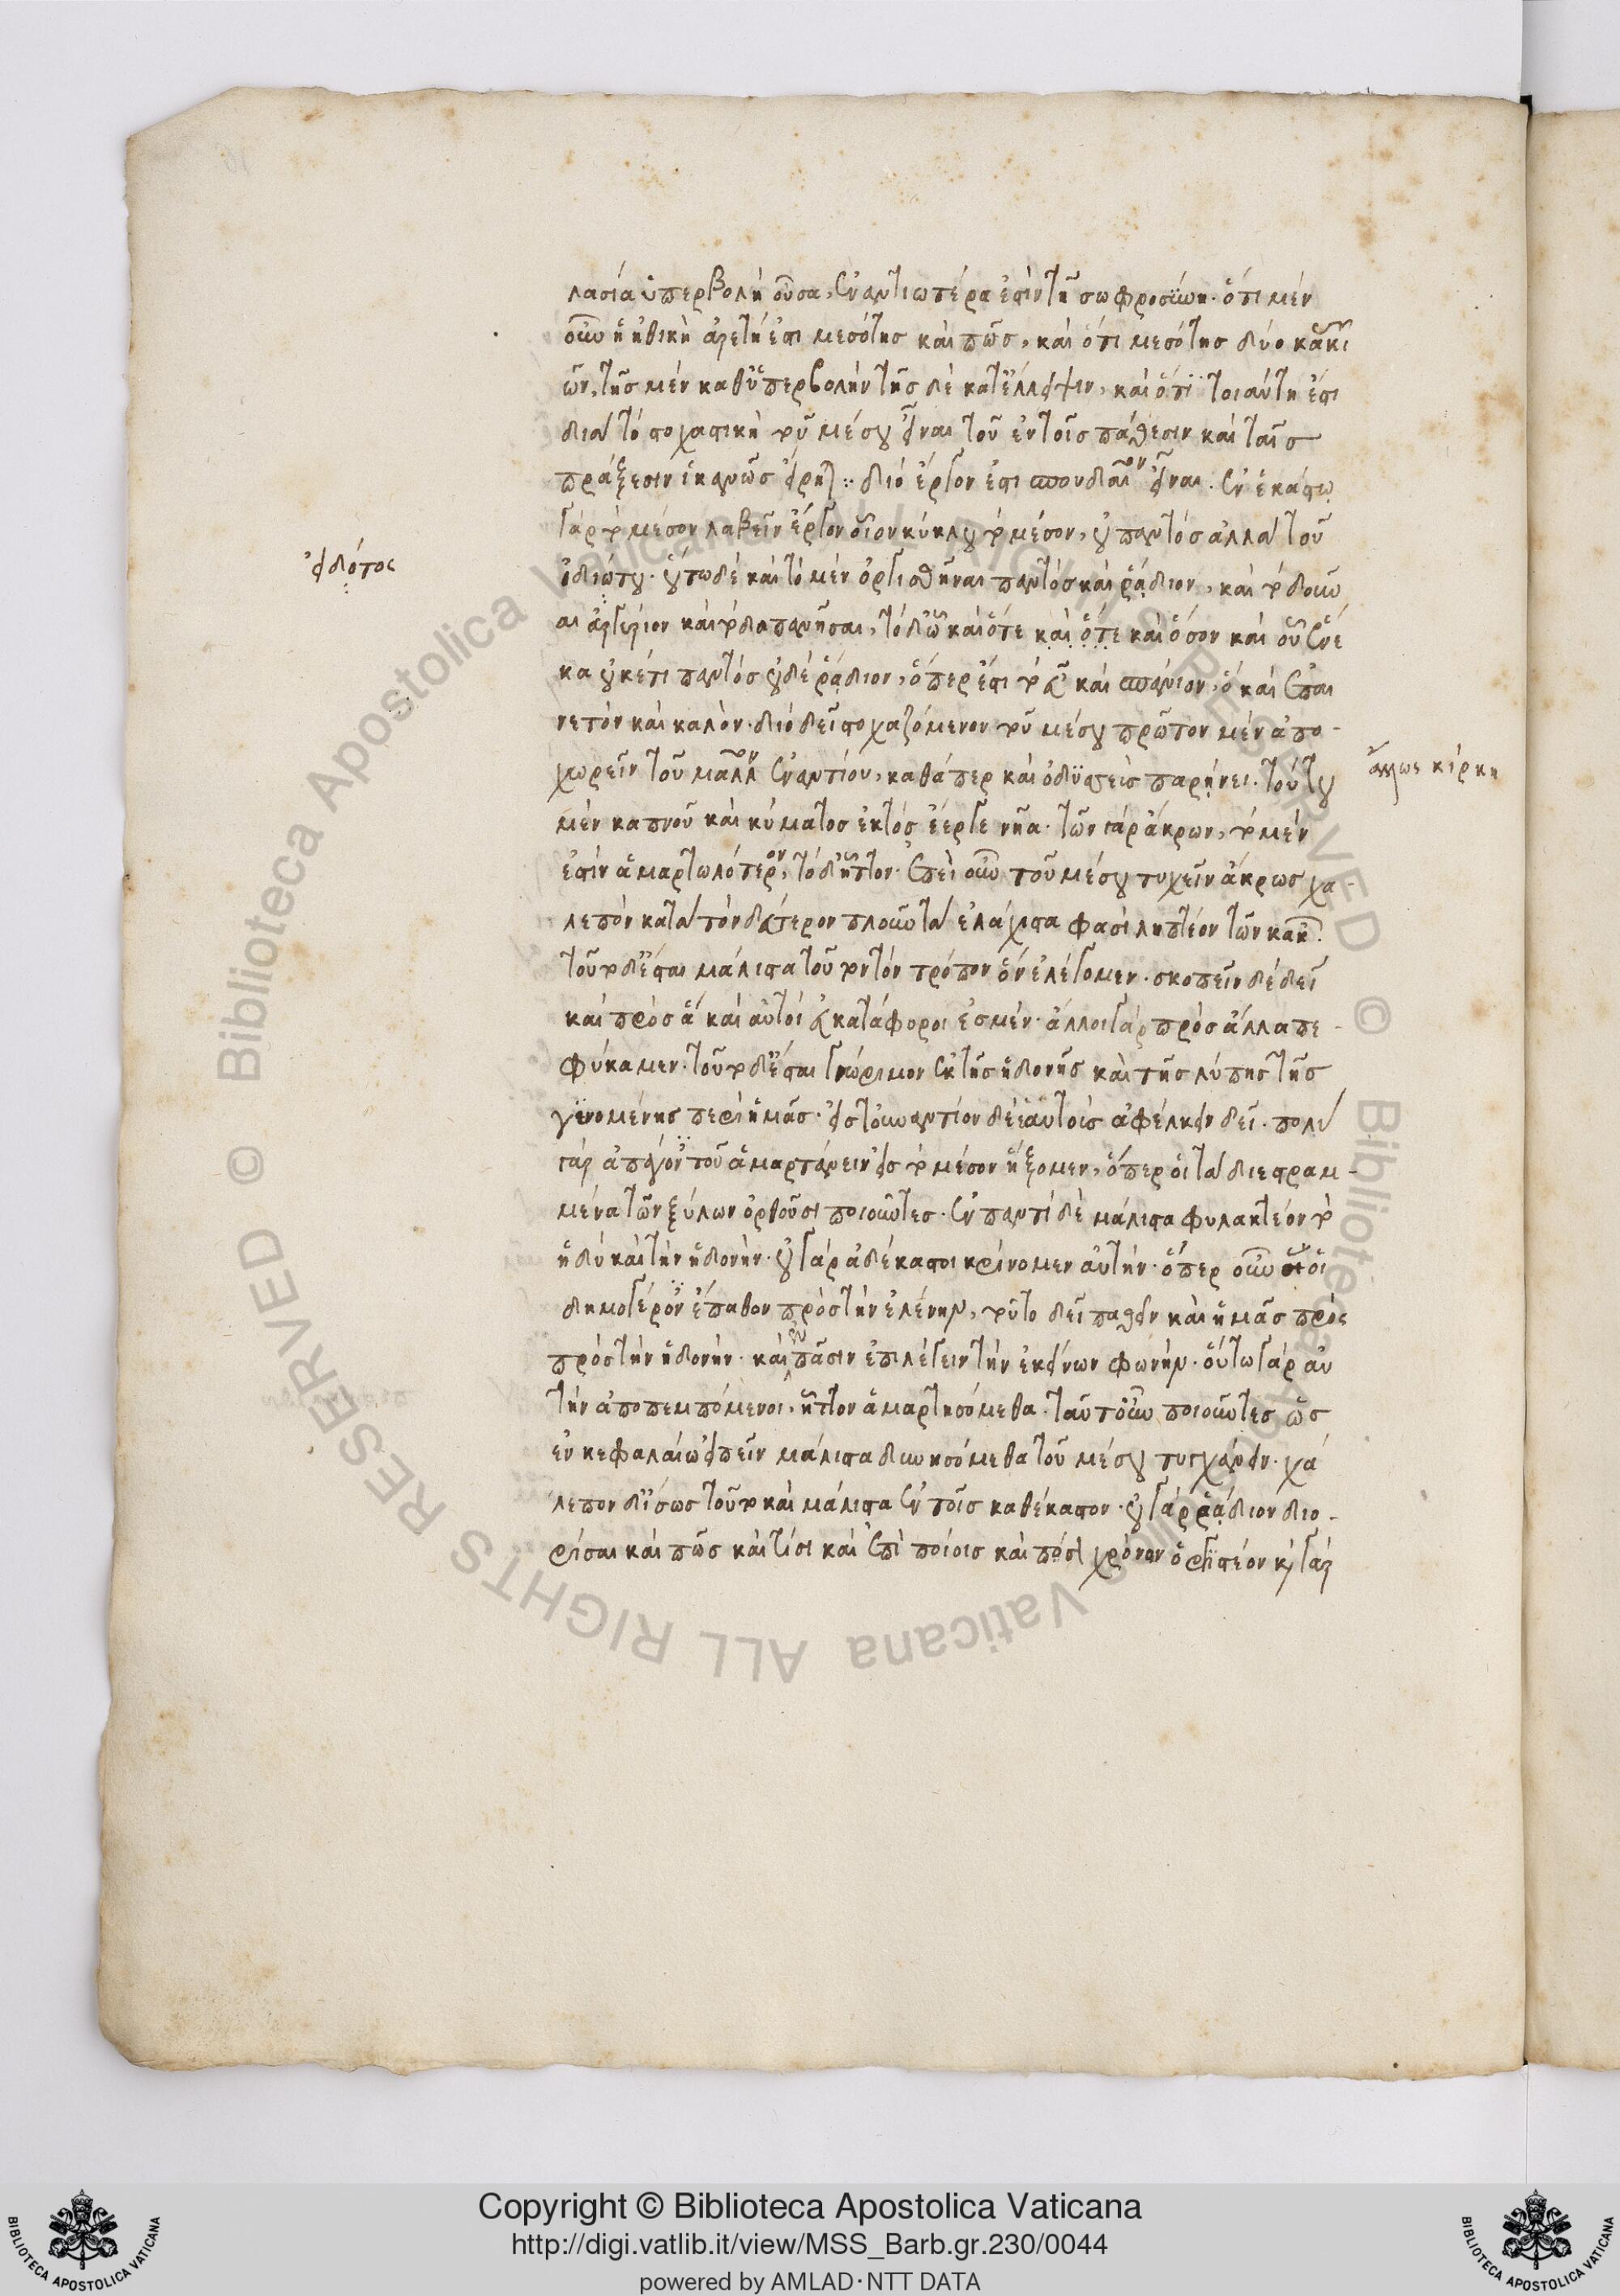 λασία ὑπερβολὴ οὖσα, ἐναντιωτέρα ἐστὶν τῆ σωφροσύνη. ὅτι μὲν
οὖν ἡ ἠθικὴ ἀρετή ἐστι μεσότης καὶ πῶς, καὶ ὅτι μεσότης δύο κακι
ῶν, τῆς μὲν καθ' ὑπερβολὴν τῆς δὲ κατ' ἔλλειψιν, καὶ ὅτι τοιαύτη ἐστι
διὰ τὸ στοχαστικὴ τοῦ μέσου εἶναι τοῦ ἐν τοῖς πάθεσιν καὶ ταῖς
πράξεσιν ἱκανῶς εἴρηται: διὸ ἔργον ἐστὶ σπουδαῖον εἶναι. ἐν ἑκάστω
γὰρ τὸ μέσον λαβεῖν ἔργον οἷον κύκλου τὸ μέσον, οὐ παντὸς ἀλλὰ τοῦ
ἰδιώτου. οὕτω δὲ καὶ τὸ μὲν ὀργισθῆναι παντὸς καὶ ῥάδιον, καὶ τὸ δοῦν
αι ἀργύριον καὶ τὸ δαπανῆσαι, τὸ δ' ὧ καὶ ὅτε καὶ ὅτε καὶ ὅσον καὶ οὗ ἕνε
κα οὐκέτι παντὸς οὐδὲ ῥάδιον, ὅπερ ἐστὶ τὸ εὖ καὶ σπάνιον, ὃ καὶ ἐπαι
νετὸν καὶ καλὸν. διὸ δεῖ στοχαζόμενον τοῦ μέσου πρῶτον μὲν ἀπο-
χωρεῖν τοῦ μᾶλλον ἐναντίου, καθάπερ καὶ ὀδυσσεὺς παρήνει. τούτου
μὲν καπνοῦ καὶ κύματος ἐκτὸς ἔεργε νῆα. τῶν γὰρ ἄκρων, τὸ μέν
ἐστιν ἁμαρτωλότερον, τὸ δ' ἧττον. ἐπεὶ οὖν τοῦ μέσου τυχεῖν ἄκρως χα-
λεπὸν κατὰ τὸν δεύτερον πλοῦν τὰ ἐλάχιστα φασὶ ληπτέον τῶν κακῶν.
τοῦτο δ' ἔσται μάλιστα τοῦτον τὸν τρόπον ὃν ἐλέγομεν. σκοπεῖν δὲ δεῖ
καὶ πρὸς ἃ καὶ αὐτοὶ εὐκατάφοροι ἐσμέν. ἄλλοι γὰρ πρὸς ἄλλα πε-
φύκαμεν. τοῦτο δ' ἔσται γνώριμον ἐκ τῆς ἡδονῆς καὶ τῆς λύπης τῆς
γινομένης περὶ ἡμᾶς. εἰς τοὐναντίον δ' ἑαυτοὺς ἀφέλκειν δεῖ. πολὺ
γὰρ ἀπάγοντες τοῦ ἁμαρτάνειν εἰς τὸ μέσον ἥξομεν, ὅπερ οἱ τὰ διεστραμ-
μένα τῶν ξύλων ὀρθοῦσι ποιοῦντες. ἐν παντὶ δὲ μάλιστα φυλακτέον τὸ
ἡδὺ καὶ τὴν ἡδονὴν. οὐ γὰρ ἀδέκαστοι κρίνομεν αὐτὴν. ὅπερ οὖν οἱ
δημογέροντες ἔπαθον πρὸς τὴν ἑλένην, τοῦτο δεῖ παθεῖν καὶ ἡμᾶς πρὸς
πρὸς τὴν ἡδονὴν. καὶ ἐν πᾶσιν ἐπιλέγειν τὴν ἐκείνων φωνὴν. οὕτω γὰρ αὐ
τὴν ἀποπεμπόμενοι, ἧττον ἁμαρτησόμεθα. ταῦτ' οὖν ποιοῦντες ὡς
ἐν κεφαλαίω εἰπεῖν μάλιστα δυνησόμεθα τοῦ μέσου τυγχάνειν. χα
λεπὸν δ' ἴσως τοῦτο καὶ μάλιστα ἐν τοῖς καθέκαστον. οὐ γὰρ ῥάδιον διο-
ρίσαι καὶ πῶς καὶ τίσι καὶ ἐπὶ ποίοις καὶ πόσον χρόνον ὀργιστέον καὶ γὰρ
εἰδότος
ἄλλως κίρκη
Copyright © Biblioteca Apostolica Vaticana
http://digi.vatlib.it/view/MSS_Barb.gr.230/0044
powered by AMLAD·NTT DATA
BIBLIOTECA APOSTOLICA VATICANA
BIBLIOTECA APOSTOLICA VATICANA
© Biblioteca Apostolica Vaticana ALL RIGHTS RESERVED © Biblioteca Apostolica Vaticana ALL RIGHTS RESERVED